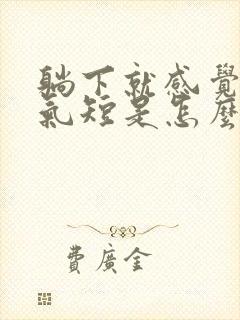 躺下就感覺
氣短是怎麼
費廣金